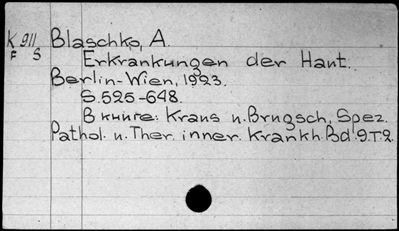 K 911 Blaschko, A.
F S Erkrankungen der Haut.
Berlin-Wien, 1923.
S. 525-648.
В книге: Kraus u. Brugsch, Spez.
Pathol. u. Ther. inner. Krankh. Bd 9.T.2.